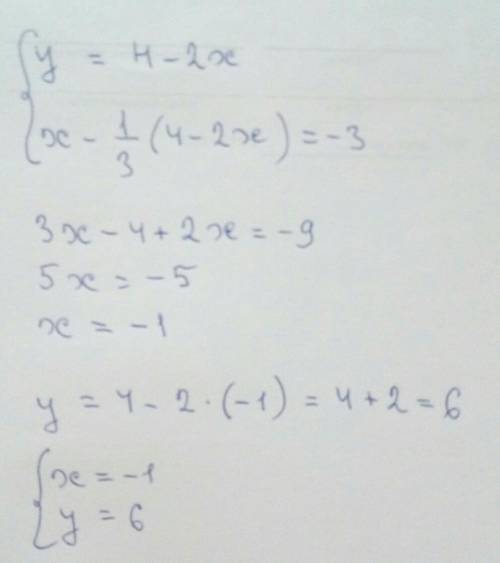 { y = 4 - 2x
x - 1/3 (4 - 2x) = -3
3x - 4 + 2x = -9
5x = -5
x = -1
y = 4 - 2 · (-1) = 4 + 2 = 6
{ x = -1
y = 6